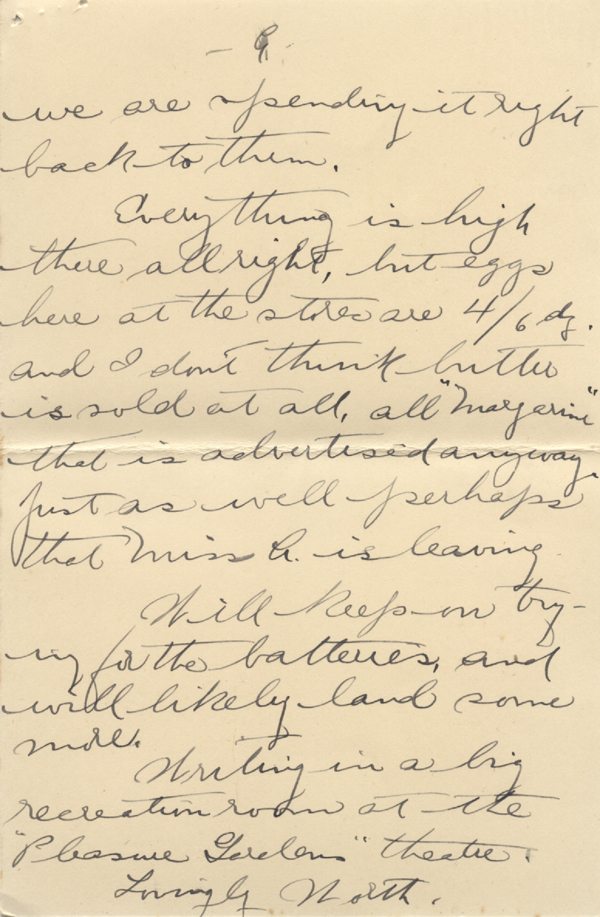 - 9 -
we are spending it right
back to them.
Everything is high
there all right, but eggs
here at the stores are 4/6 dz.
and I don't think butter
is sold at all, all "Margarine"
that is advertised anyway.
Just as well perhaps
that Miss G. is leaving.
Will keep on try-
ing for the batteries, and
will likely land some
more.
Writing in a big
recreation room at the
"Pleasure Gardens" theatre.
Lovingly North.